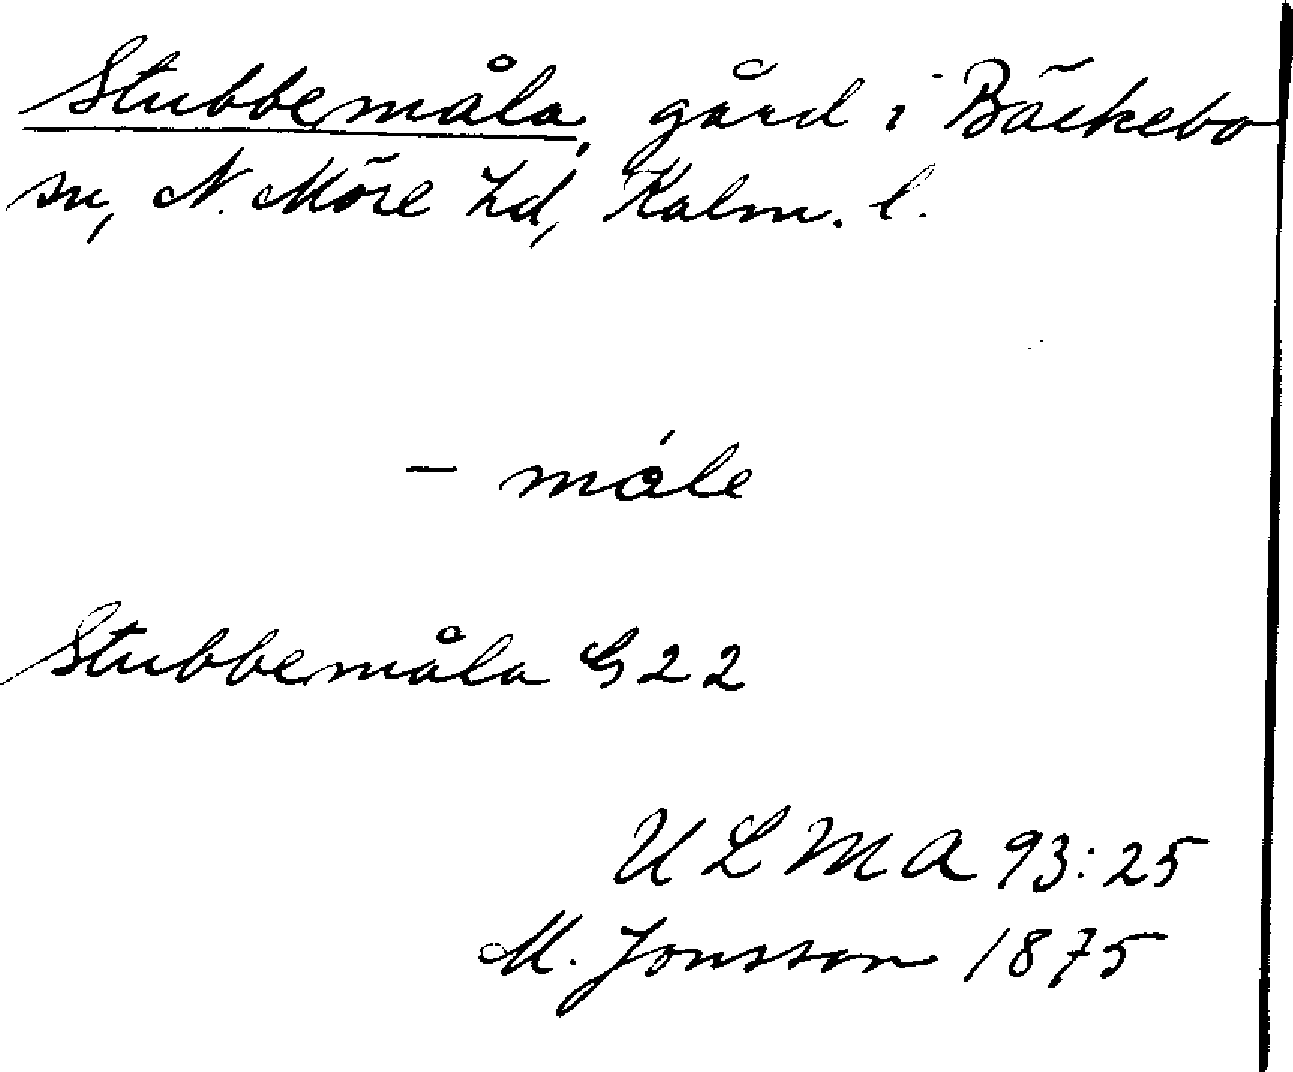 Stubbemåla, gård i Bäckebo
sn, N. Möre hd, Kalm. l.
- måle
Stubbemåla G 22
ULMA 93:25
M. Jonsson 1875